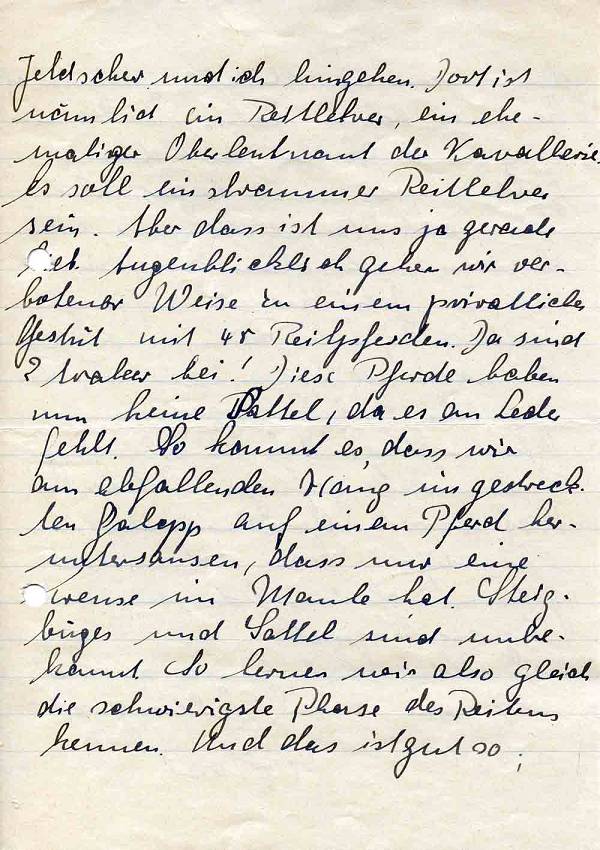 Feldscher und ich hingehen. Dort ist
nämlich ein Reitlehrer, ein ehe-
maliger Oberleutnant der Kavallerie.
Es soll ein strammer Reitlehrer
sein. Aber dass ist uns ja gerade
lieb. Augenblicklich gehen wir ver-
botener Weise zu einem privatlichen
Gestüt mit 45 Reitpferden. Da sind
2 Araber bei! Diese Pferde haben
nun keine Sattel, da es an Leder
fehlt. So kommt es, dass wir
am abfallenden Hang im gestreck-
ten Galopp auf einem Pferd her-
untersausen, dass nur eine
im Maule hat. Steig-
büges und Sattel sind unbe-
kannt. So lernen wir also gleich
die schwierigste Phase des Reitens
kennen. Und das ist gut so;